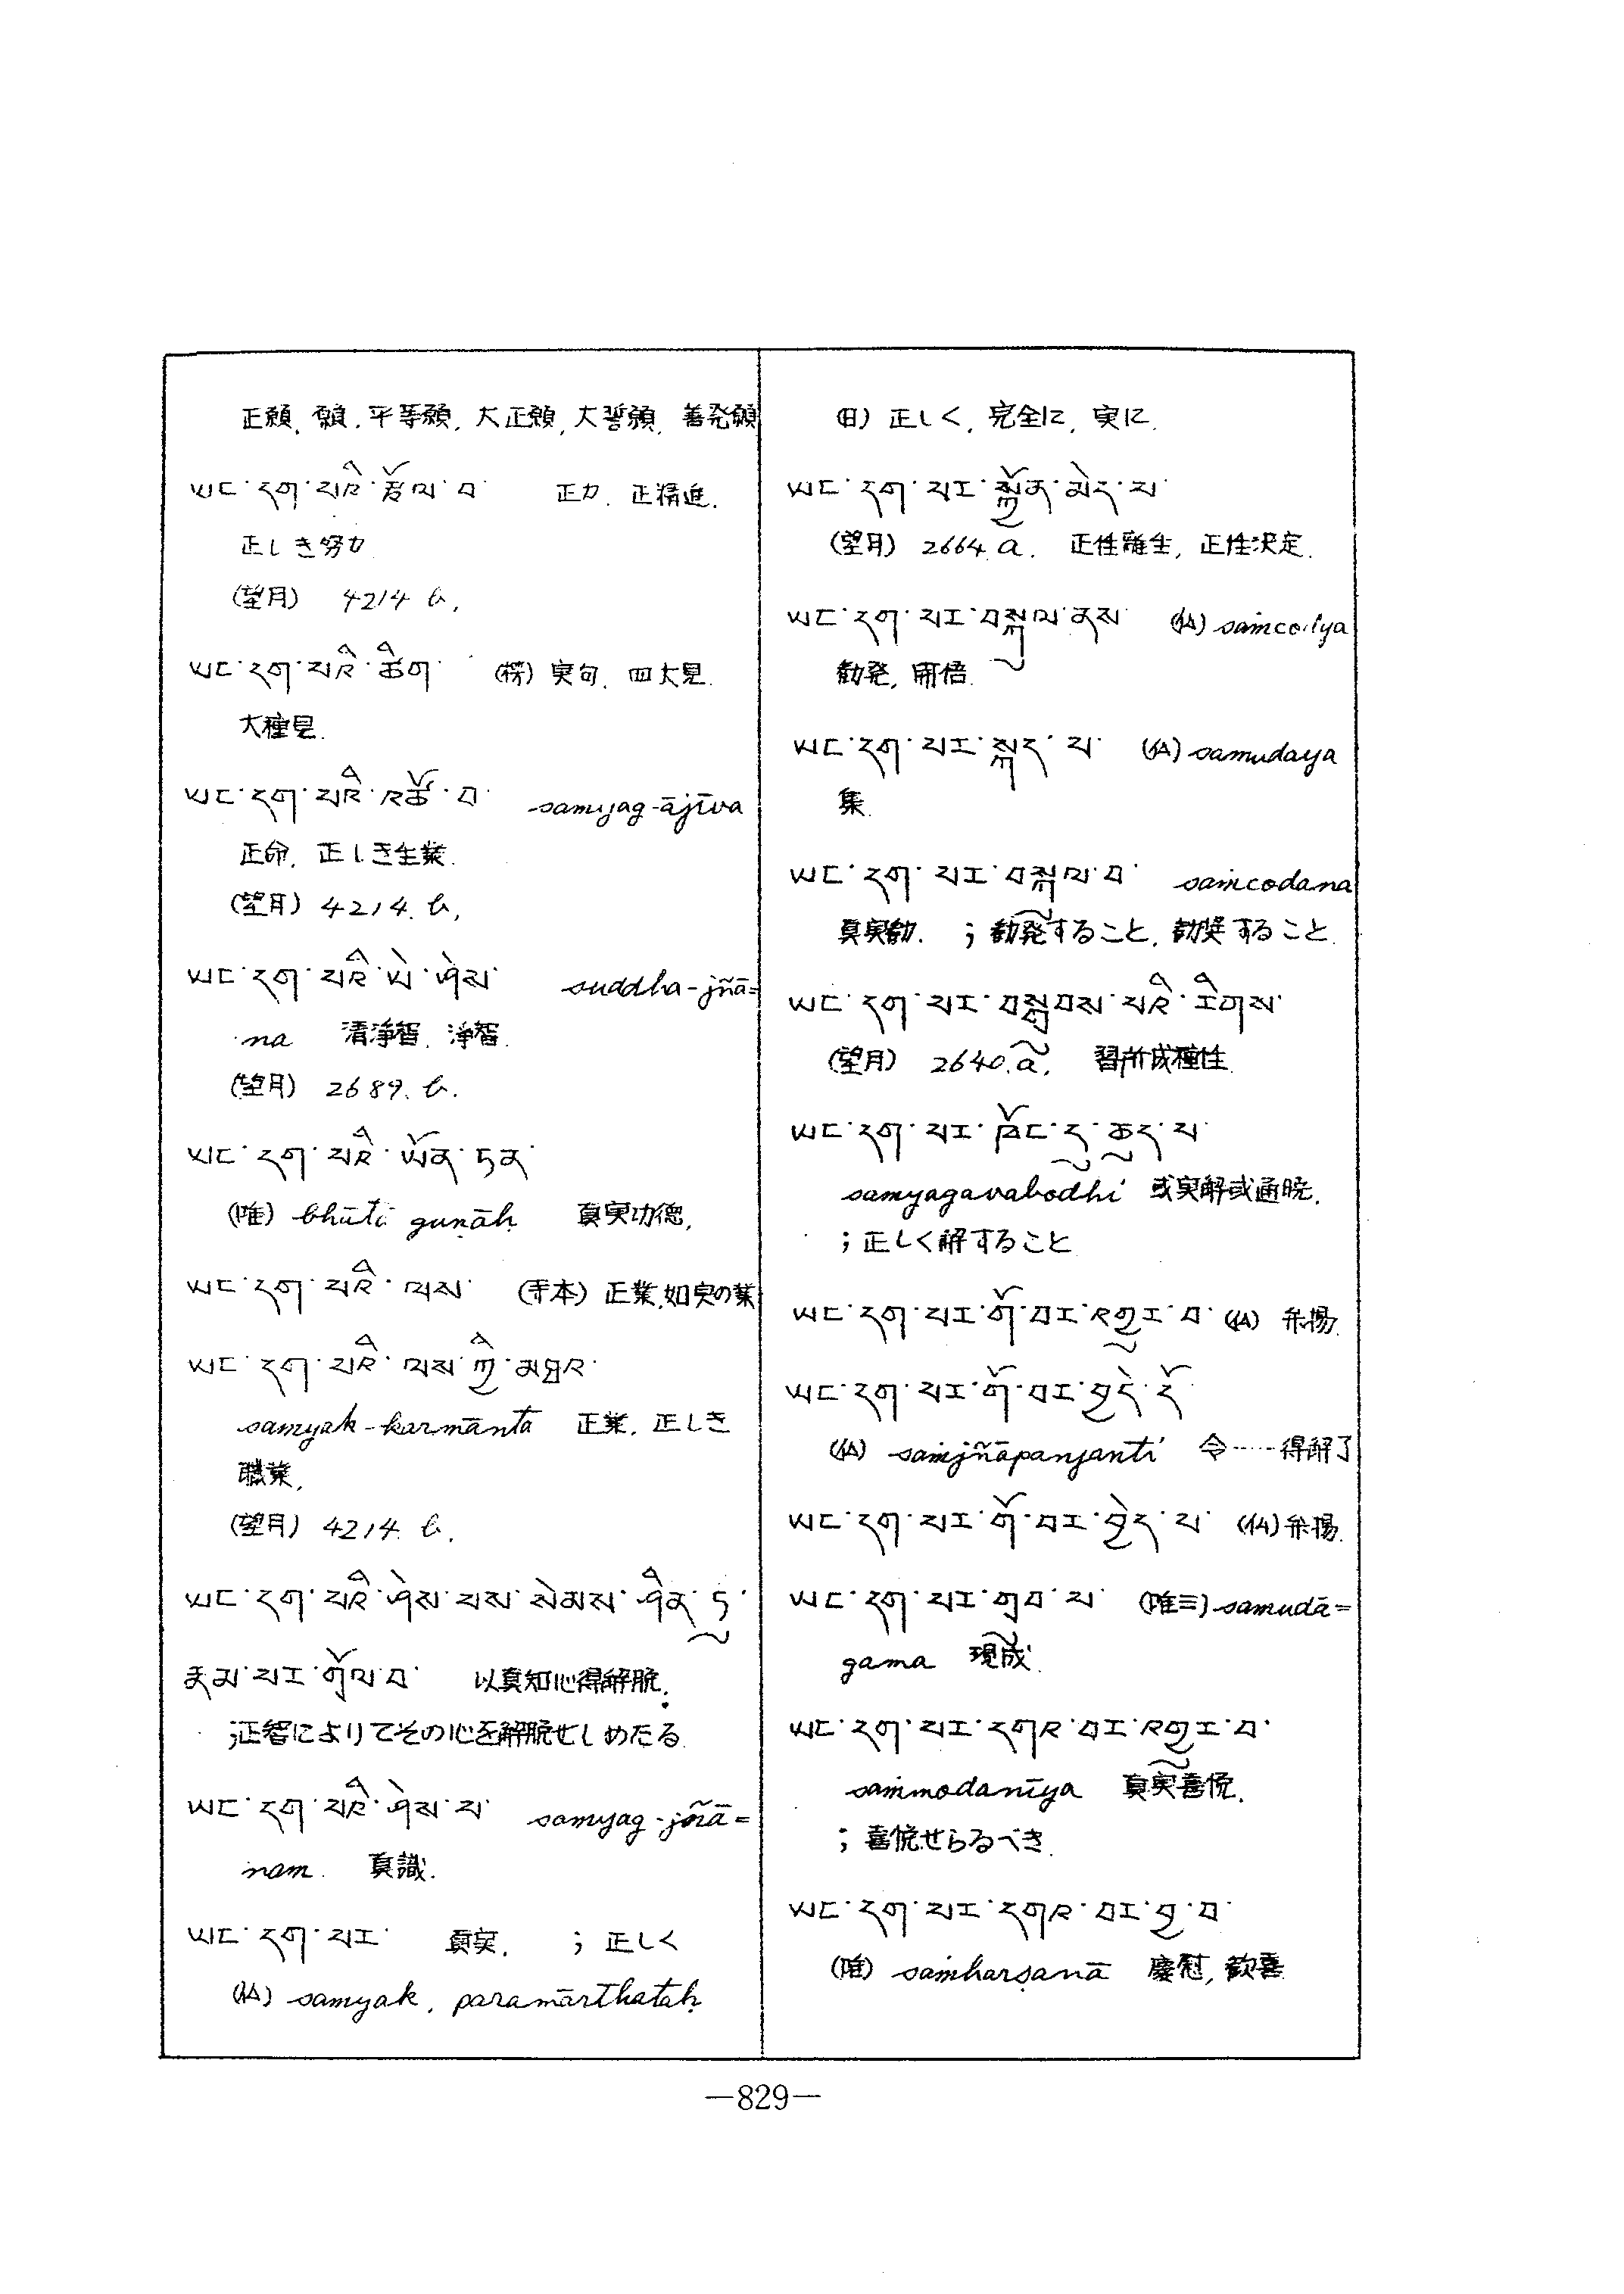 正願, 願, 平等願, 大正願, 大誓願, 善発願
ཡང་དག་པའི་རྩོལ་བ་ 正力, 正精進.
正しき努力
(望月) 4214 b,
ཡང་དག་པའི་ཚིག་ (榜) 実句, 四大見.
大種見.
ཡང་དག་པའི་འཚོ་བ་ samyag-ājīva
正命, 正しき生業.
(望月) 4214. b,
ཡང་དག་པའི་ཡེ་ཤེས་ suddha-jñā=
na 清浄智, 浄智.
(望月) 2689. b.
ཡང་དག་པའི་ཡོན་ཏན་
(唯) bhūtā guṇāḥ 真実功徳,
ཡང་དག་པའི་ལས་ (寺本) 正業, 如実の業
ཡང་དག་པའི་ལས་ཀྱི་མཐའ་
samyak-karmānta 正業, 正しき
職業,
(望月) 4214. b,
ཡང་དག་པའི་ཤེས་པས་སེམས་ཤིན་ཏུ་
རྣམ་པར་གྲོལ་བ་ 以真知心得解脱.
;正智によりてその心を解脱せしめたる
ཡང་དག་པའི་ཤེས་པ་ samyag-jñā=
nam. 真識.
ཡང་དག་པར་ 真実, ; 正しく
(仏) samyak, paramārthataḥ
(日) 正しく, 完全に, 実に.
ཡང་དག་པར་སྐྱོན་མེད་པ་
(望月) 2664. a. 正性離生, 正性決定.
ཡང་དག་པར་བསྐུལ་ནས་ (仏)
勧発, 開悟.
ཡང་དག་པར་སྐུད་པ་ (仏) samudaya
集.
ཡང་དག་པར་བསྐུལ་བ་ saṁcodana
真実勧. ; 勧発すること, 勧奨すること.
ཡང་དག་པར་བསྒྲུབས་པའི་རིགས་
(望月) 2640. a. 習所成種性.
ཡང་དག་པར་ཁོང་དུ་ཆུད་པ་
samyagavabodhi 或実解或通暁.
; 正しく解すること
ཡང་དག་པར་གོ་བར་འགྱུར་བ་ (仏) 弁揚.
ཡང་དག་པར་གོ་བར་བྱེད་དོ་
(仏) saṁjñāpanjanti 令……得解了
ཡང་དག་པར་གོ་བར་བྱེད་པ་ (仏) 弁揚.
ཡང་དག་པར་གྲུབ་པ་ (唯三) samudā=
gama 現成.
ཡང་དག་པར་དགའ་བར་འགྱུར་བ་
saṁmodanīya 真実喜悦.
; 喜悦せらるべき.
ཡང་དག་པར་དགའ་བར་བྱ་བ་
(唯) saṁharṣanā 慶慰, 歓喜
—829—